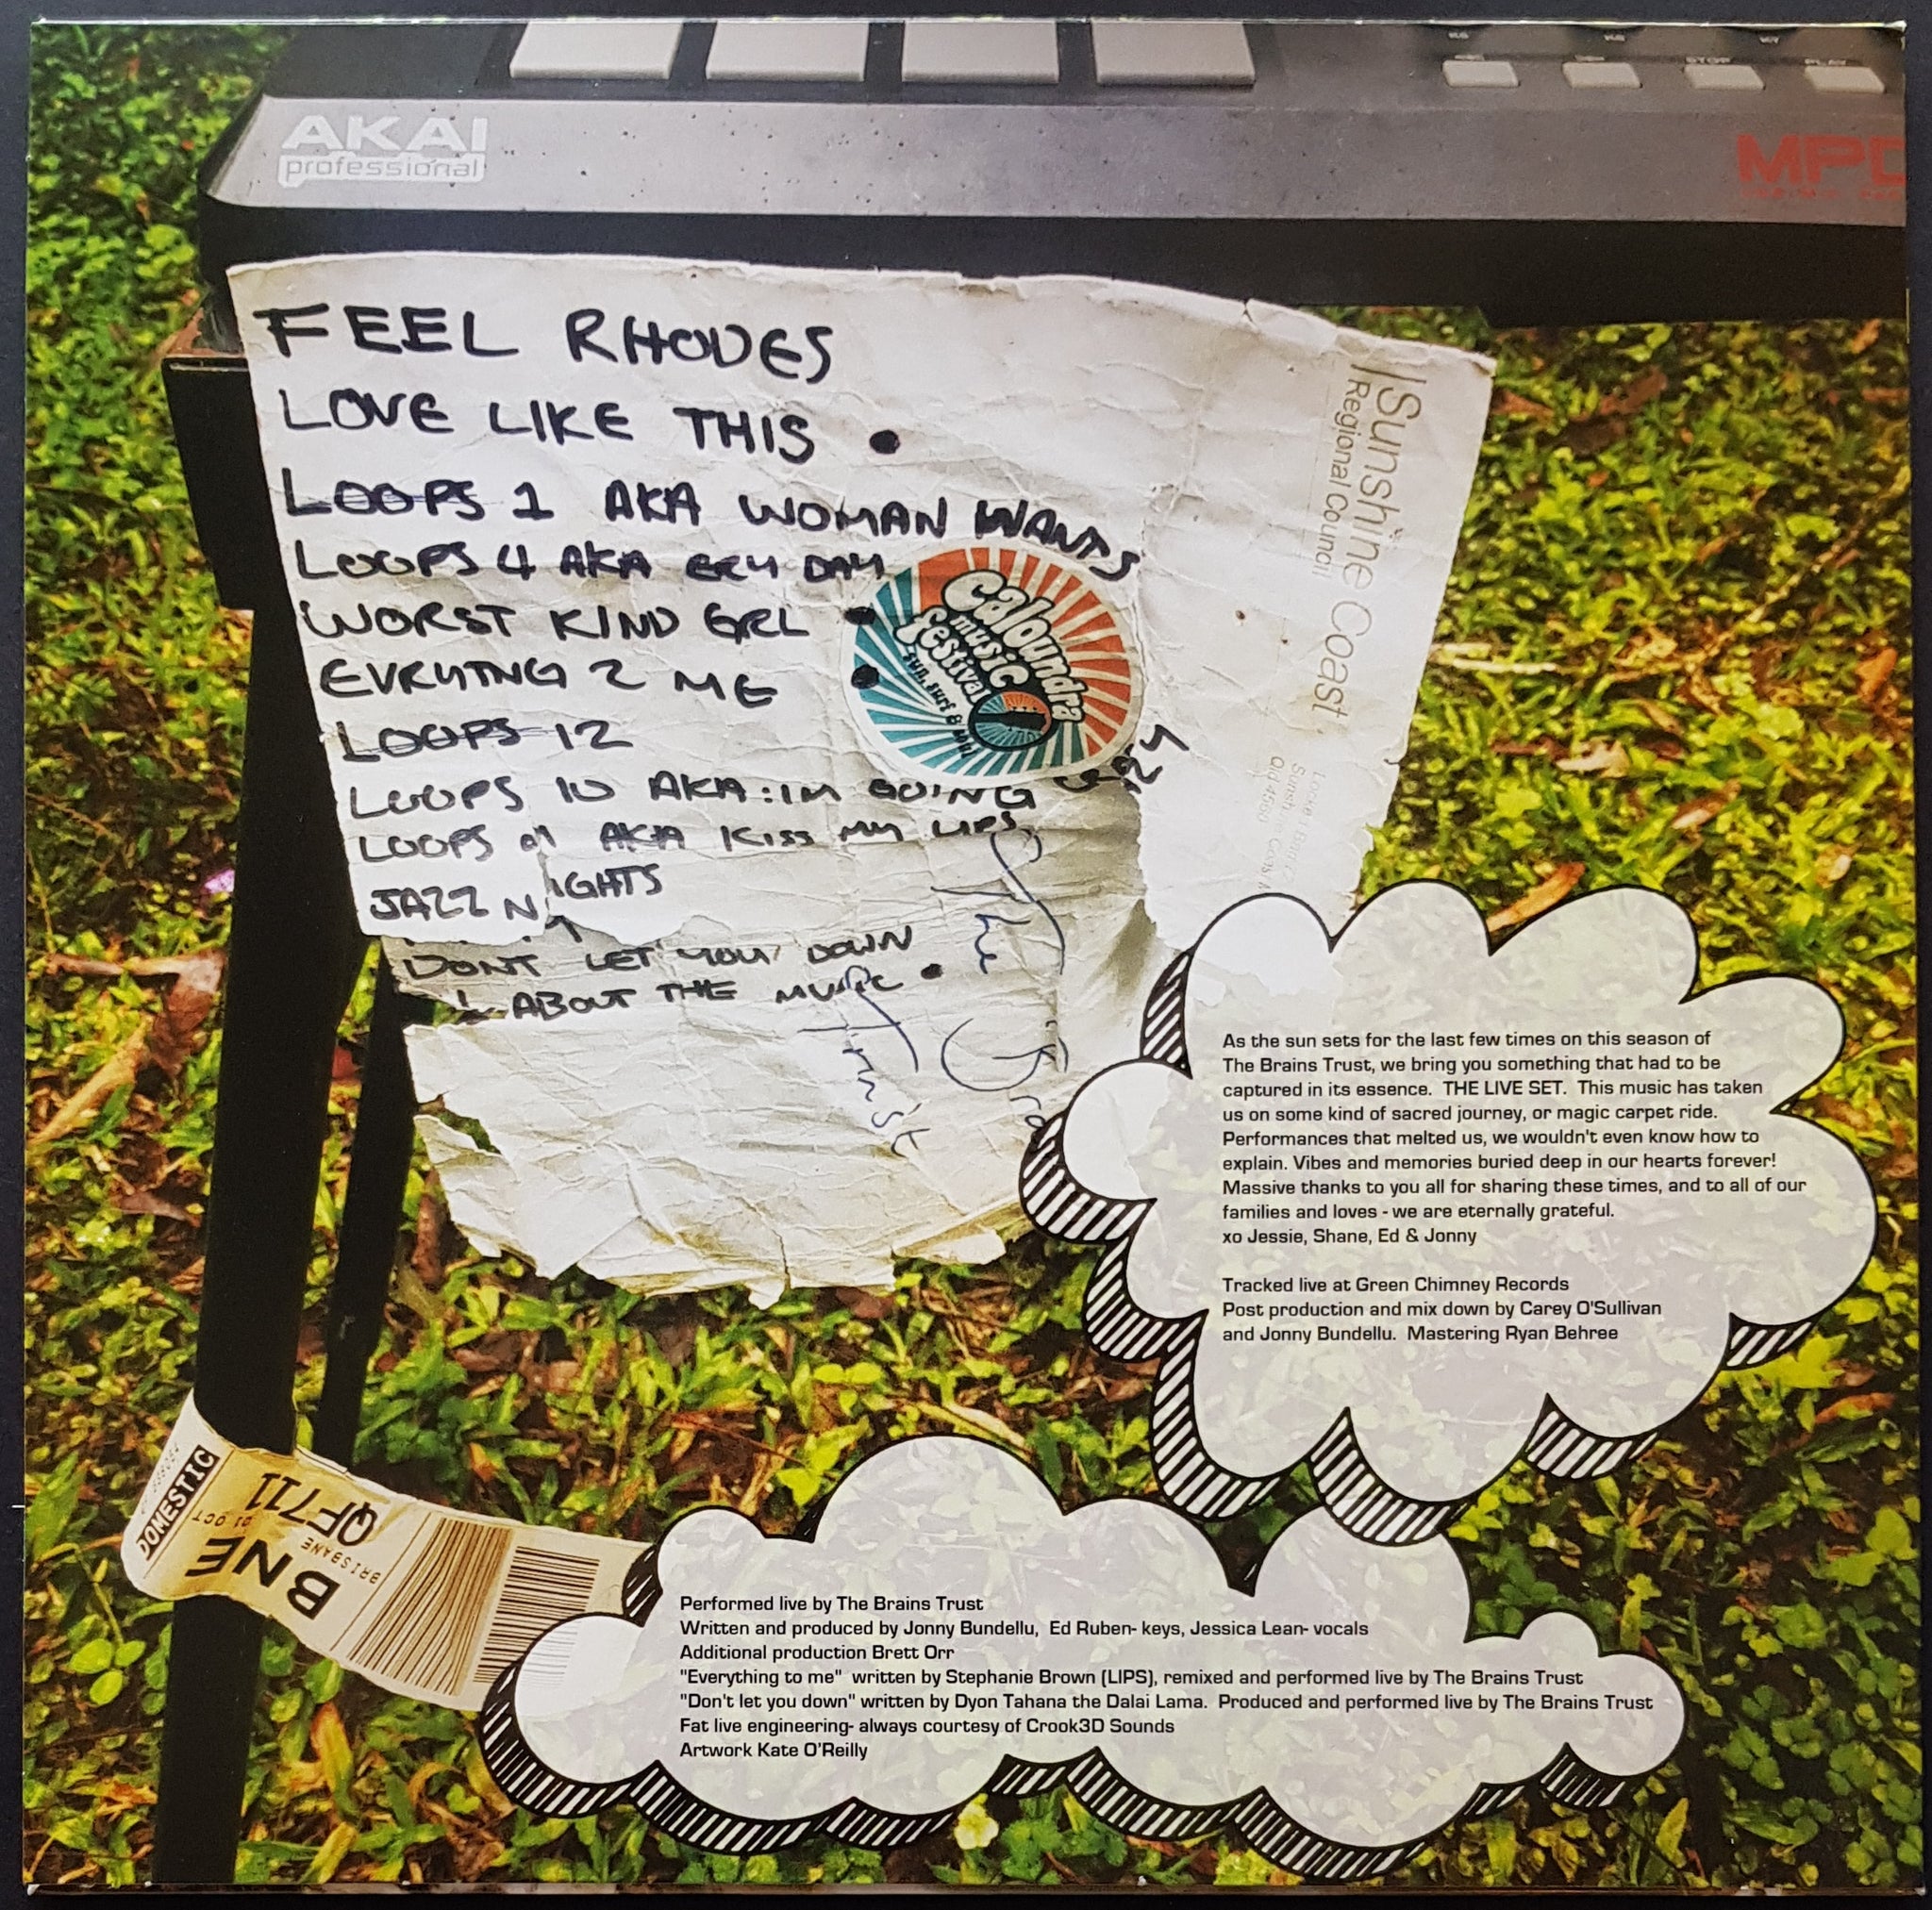 AKAI
professional
MPD
STOP
PLAY
FEEL RHODES
LOVE LIKE THIS •
LOOPS 1 AKA WOMAN WANTS
LOOPS 4 AKA ERY DAY
WORST KIND GRL •
EVRYTNG 2 ME •
LOOPS 12
LOOPS 10 AKA: IM GOING
LOOPS AKA KISS MY LIPS
JAZZ NIGHTS
DONT LET YOU DOWN
ABOUT THE MUSIC •
The
Trust
caloundra
music
festival
sun, surf &
Sunshine Coast
Regional Council
As the sun sets for the last few times on this season of
The Brains Trust, we bring you something that had to be
captured in its essence. THE LIVE SET. This music has taken
us on some kind of sacred journey, or magic carpet ride.
Performances that melted us, we wouldn't even know how to
explain. Vibes and memories buried deep in our hearts forever!
Massive thanks to you all for sharing these times, and to all of our
families and loves - we are eternally grateful.
xo Jessie, Shane, Ed & Jonny
Tracked live at Green Chimney Records
Post production and mix down by Carey O'Sullivan
and Jonny Bundellu. Mastering Ryan Behree
DOMESTIC
QF711
01 OCT
BRISBANE
BNE
Performed live by The Brains Trust
Written and produced by Jonny Bundellu, Ed Ruben- keys, Jessica Lean- vocals
Additional production Brett Orr
"Everything to me" written by Stephanie Brown (LIPS), remixed and performed live by The Brains Trust
"Don't let you down" written by Dyon Tahana the Dalai Lama. Produced and performed live by The Brains Trust
Fat live engineering- always courtesy of Crook3D Sounds
Artwork Kate O'Reilly